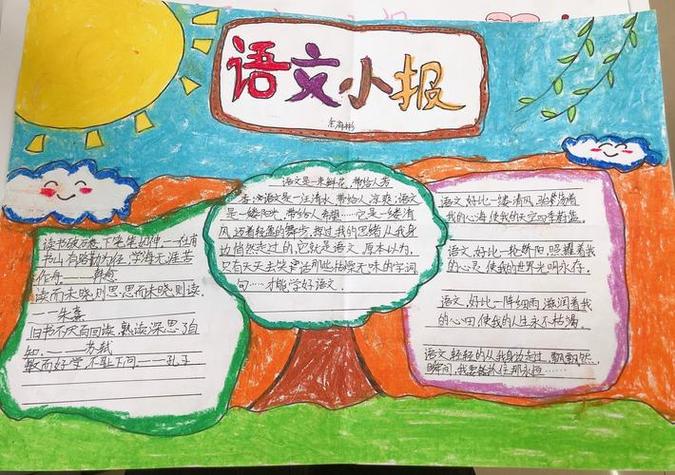 语文小报
读书破万卷,下笔如有神
书山有路勤为径,学海无涯苦
作舟。——韩愈
读而未晓,则思,思而未晓,则读。
——朱熹
旧书不厌百回读,熟读深思子自
知。——苏轼
敏而好学,不耻下问——孔子
语文是一束鲜花,带给人芳
香;语文是一汪清水,带给人凉爽;语文
是一缕阳光,带给人希望……它是一缕清
风,迈着轻盈的舞步,掠过我的思绪,从我身
边悄然走过的,它就是语文。原本以为,
只有天天去啃那些枯燥无味的字词
句……才能学好语文。
语文,好比一缕清风,
我的心海,使我的天空四季蔚蓝。
语文,好比一轮骄阳,照耀着我
的心灵,使我的世界光明永存。
语文,好比一阵细雨,滋润着我
的心田,使我的人生永不枯竭。
语文,轻轻的从我身边走过,飘飘然
瞬间,我要抓住那永恒……